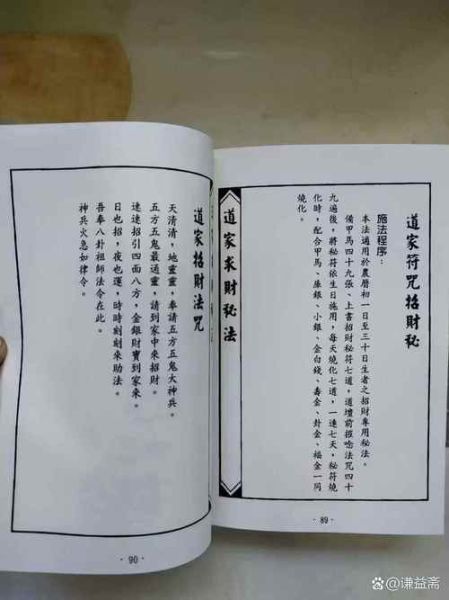 道家符咒招財秘
施法程序：
本法適用於農曆初一日至三十日生者之招財專用秘法。
備甲馬四十九張、上書招財秘符七道，道壇前撚唸法咒四十
九遍後，將秘符依生日施用，每天燒化七道，一連七天，秘符燒
化時，配合甲馬、庫銀、小銀、金白錢、壽金、卦金、福金一同
燒化。
道家求財秘法
·89·
道家招財法咒
天清清，地靈靈，奉請五方五鬼大神兵。
五方五鬼最通靈，請到家中來招財。
速速招引四面八方，金銀財寶到家來。
日也招，夜也運，時時刻刻來助法。
吾奉八卦祖師法令在此。
神兵火急如律令。
·90·
百家号/谦益斋